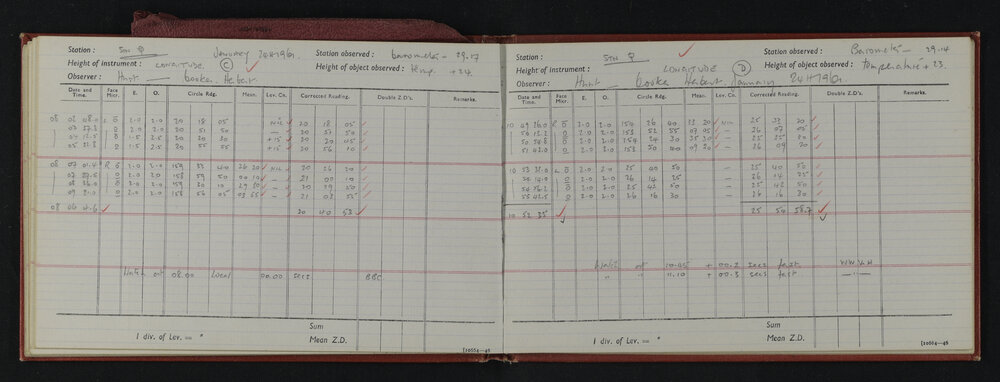 Station : STN Q January 24th 1961 Station observed : barometer - 29.17
Height of instrument : LONGITUDE C Height of object observed : temp. +24.
Observer : Hunt Cooke Herbert.
Date and Time. Face Micr. E. O. Circle Rdg. Mean. Lev. Co. Corrected Reading. Double Z.D's. Remarks.
08 02 08.0 L O 2.0 2.0 20 18 05 NIL 20 18 05
O 2.0 2.0 20 51 50 - 20 51 50
O 1.5 2.5 20 20 30 +15 20 20 45
O 1.5 2.5 20 55 55 +15 20 56 10
08 07 01.4 R O 2.0 2.0 159 33 40 26 20 NIL 20 26 20
O 2.0 2.0 158 59 50 00 10 - 21 00 10
08 O 2.0 2.0 159 30 10 29 50 - 20 29 50
09 O 2.0 2.0 158 56 05 03 55 - 21 03 55
08 06 4.6 20 40 53
Watch at 08.00 Local 00.00 secs BBC
Sum
1 div. of Lev. = " Mean Z.D.
[10664—46
Station : STN Q Station observed : Barometer - 29.14
Height of instrument : LONGITUDE D Height of object observed : temperature + 23.
Observer : Hunt Cooke Herbert January 24th 1961.
Date and Time. Face Micr. E. O. Circle Rdg. Mean. Lev. Co. Corrected Reading. Double Z.D's. Remarks.
10 49 26.0 R O 2.0 2.0 154 26 40 33 20 NIL 25 33 20
50 O 2.0 2.0 153 52 55 07 05 - 26 07 05
50 O 2.0 2.0 154 24 30 35 30 - 25 35 30
51 O 2.0 2.0 153 50 40 09 20 - 26 09 20
10 53 O 2.0 2.0 25 40 50 - 25 40 50
O 2.0 2.0 26 14 25 - 26 14 25
O 2.0 2.0 25 42 50 - 25 42 50
55 42.5 O 2.0 2.0 26 16 30 - 26 16 30
10 52 35 25 54 58.7
Watch at 10.45 + 00.2 secs fast WWVH
" " 11.10 + 00.3 secs fast —"—
Sum
1 div. of Lev. = " Mean Z.D.
[10664—46